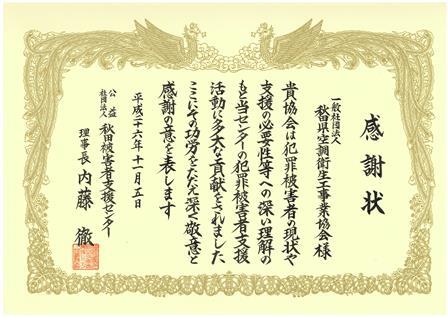 感謝状
一般社団法人
秋田県空調衛生工事業協会様
貴協会は犯罪被害者の現状や
支援の必要性等への深い理解の
もと当センターの犯罪被害者支援
活動に多大な貢献をされました
ここにその功労をたたえ深く敬意と
感謝の意を表します
平成二十六年十一月五日
公益
社団法人
秋田被害者支援センター
理事長 内藤 徹